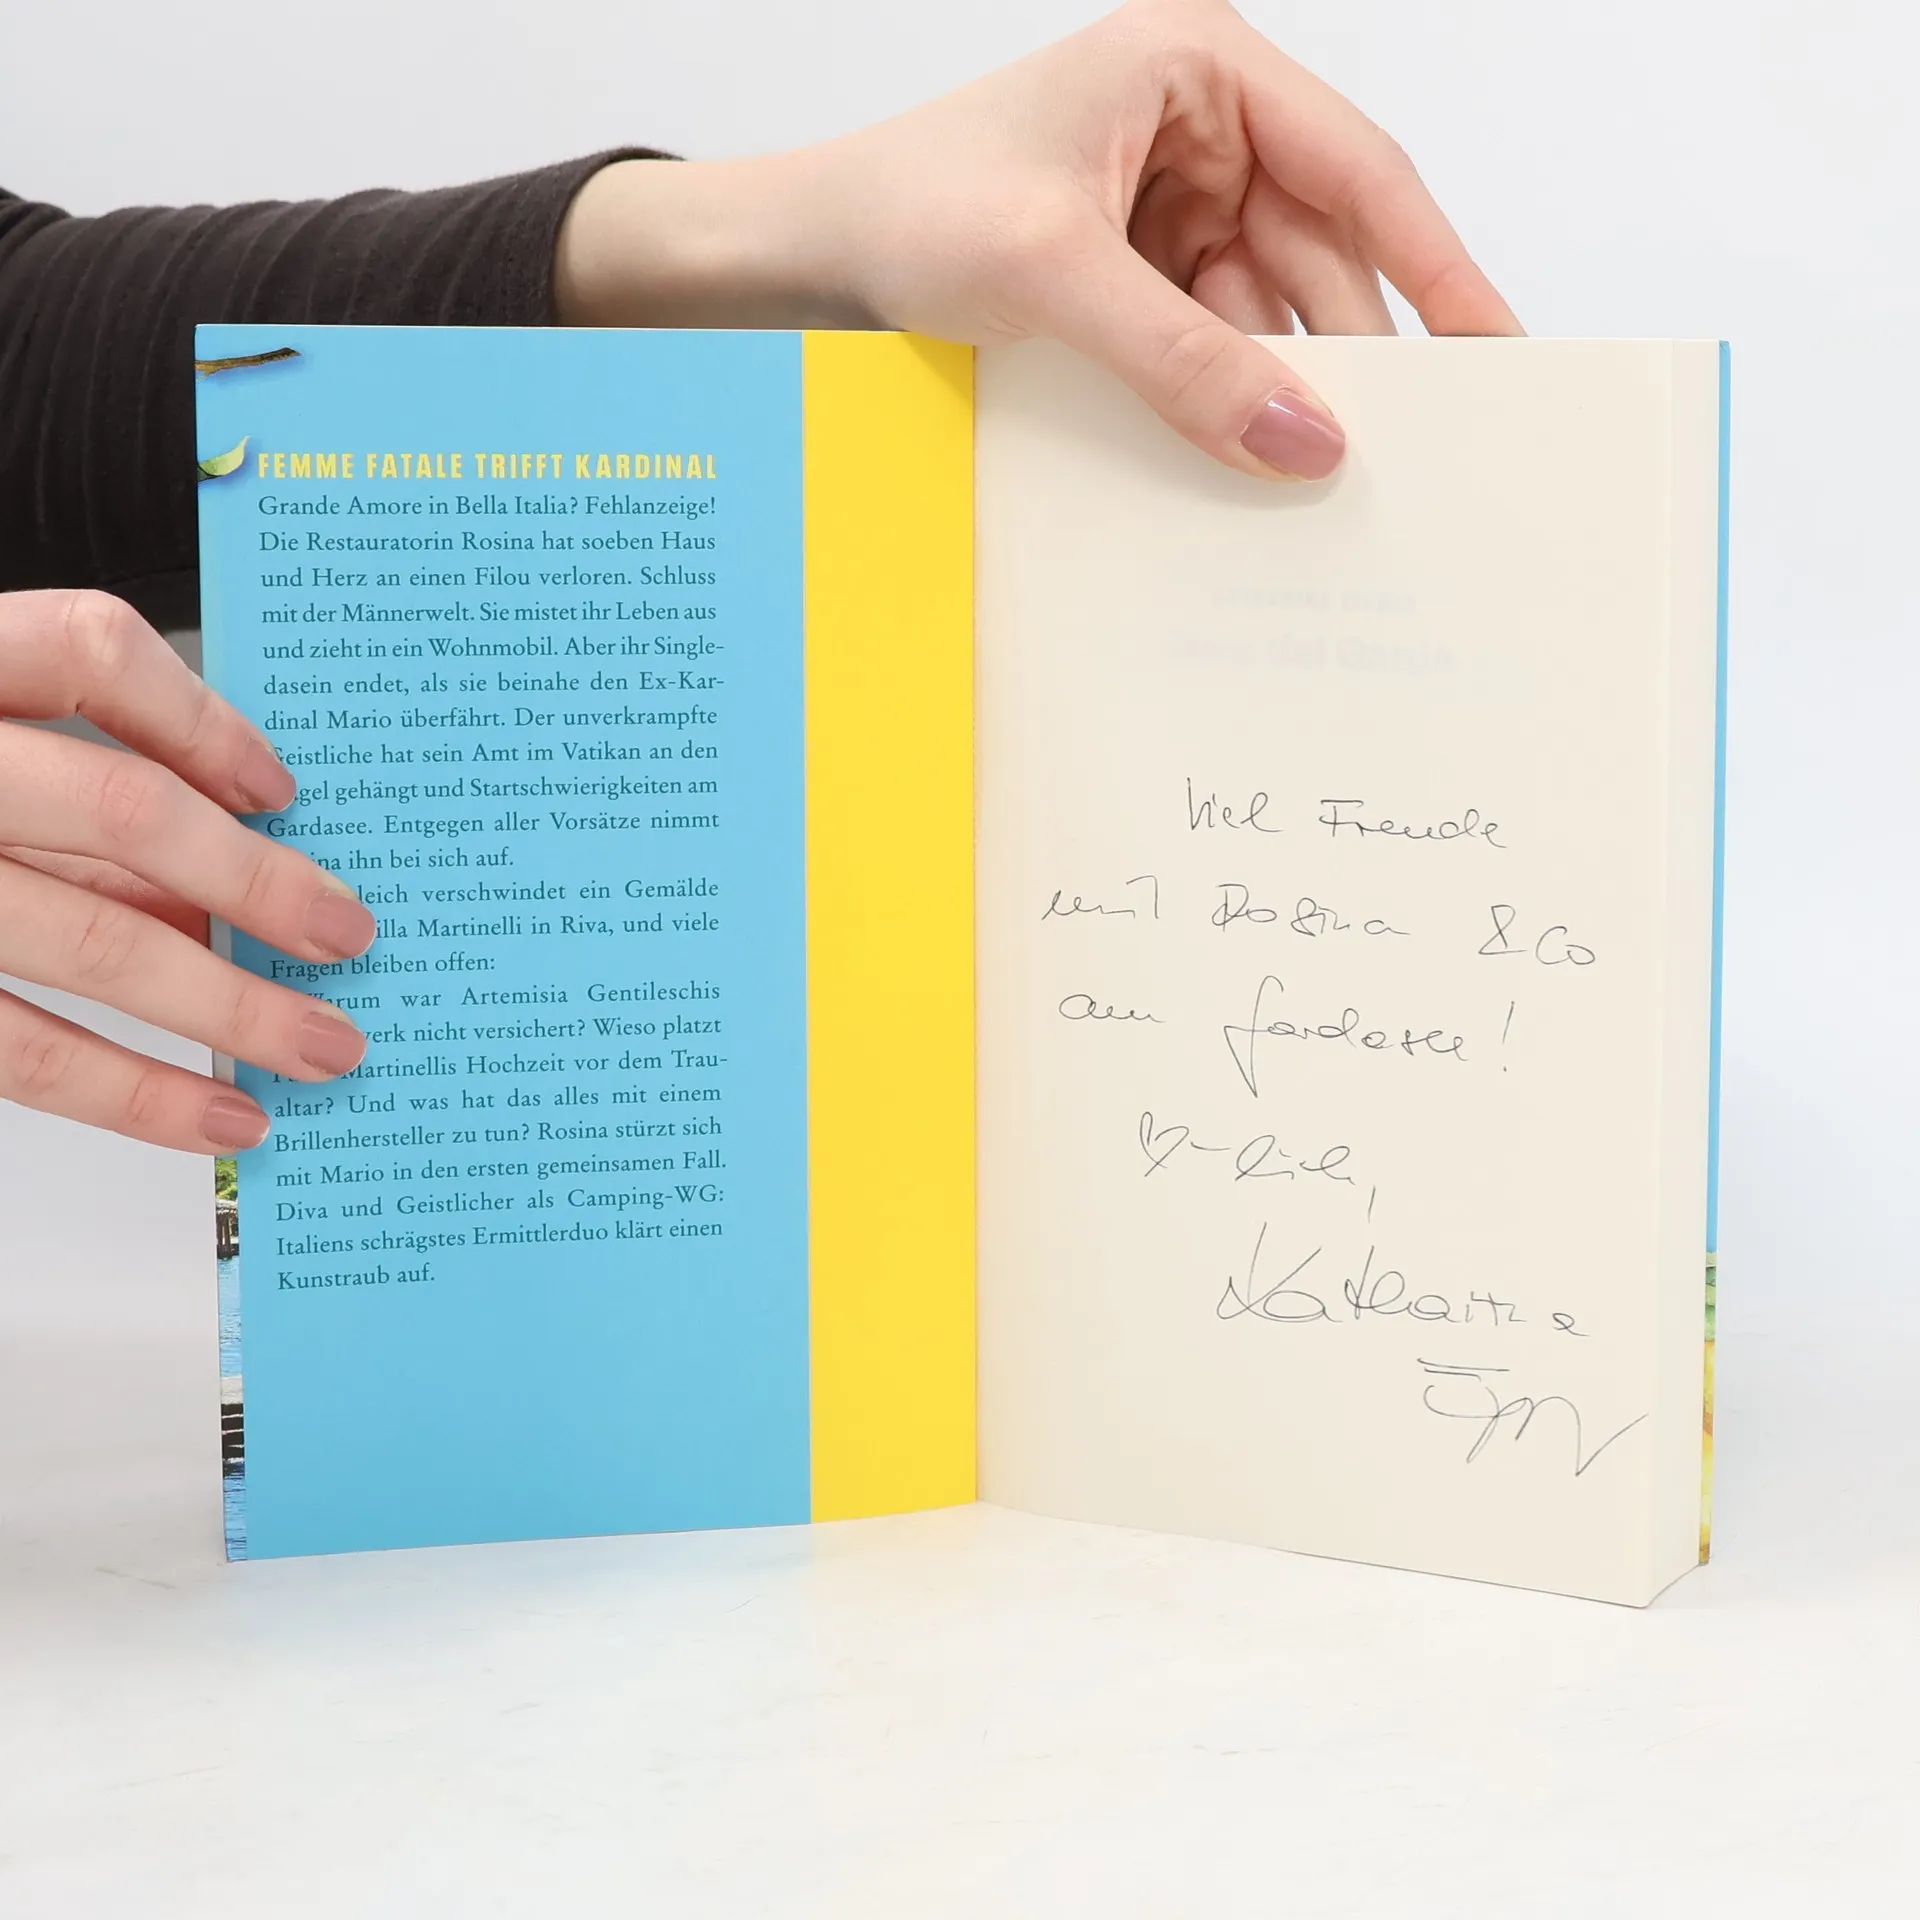 FEMME FATALE TRIFFT KARDINAL
Grande Amore in Bella Italia? Fehlanzeige!
Die Restauratorin Rosina hat soeben Haus
und Herz an einen Filou verloren. Schluss
mit der Männerwelt. Sie mistet ihr Leben aus
und zieht in ein Wohnmobil. Aber ihr Single-
dasein endet, als sie beinahe den Ex-Kar-
dinal Mario überfährt. Der unverkrampfte
eistliche hat sein Amt im Vatikan an den
gel gehängt und Startschwierigkeiten am
Gardasee. Entgegen aller Vorsätze nimmt
ina ihn bei sich auf.
leich verschwindet ein Gemälde
illa Martinelli in Riva, und viele
Fragen bleiben offen:
Warum war Artemisia Gentileschis
werk nicht versichert? Wieso platzt
Martinellis Hochzeit vor dem Trau-
altar? Und was hat das alles mit einem
Brillenhersteller zu tun? Rosina stürzt sich
mit Mario in den ersten gemeinsamen Fall.
Diva und Geistlicher als Camping-WG:
Italiens schrägstes Ermittlerduo klärt einen
Kunstraub auf.
Viel Freude
mit Rosina & Co
am Gardasee!
♡-lich,
Katharina